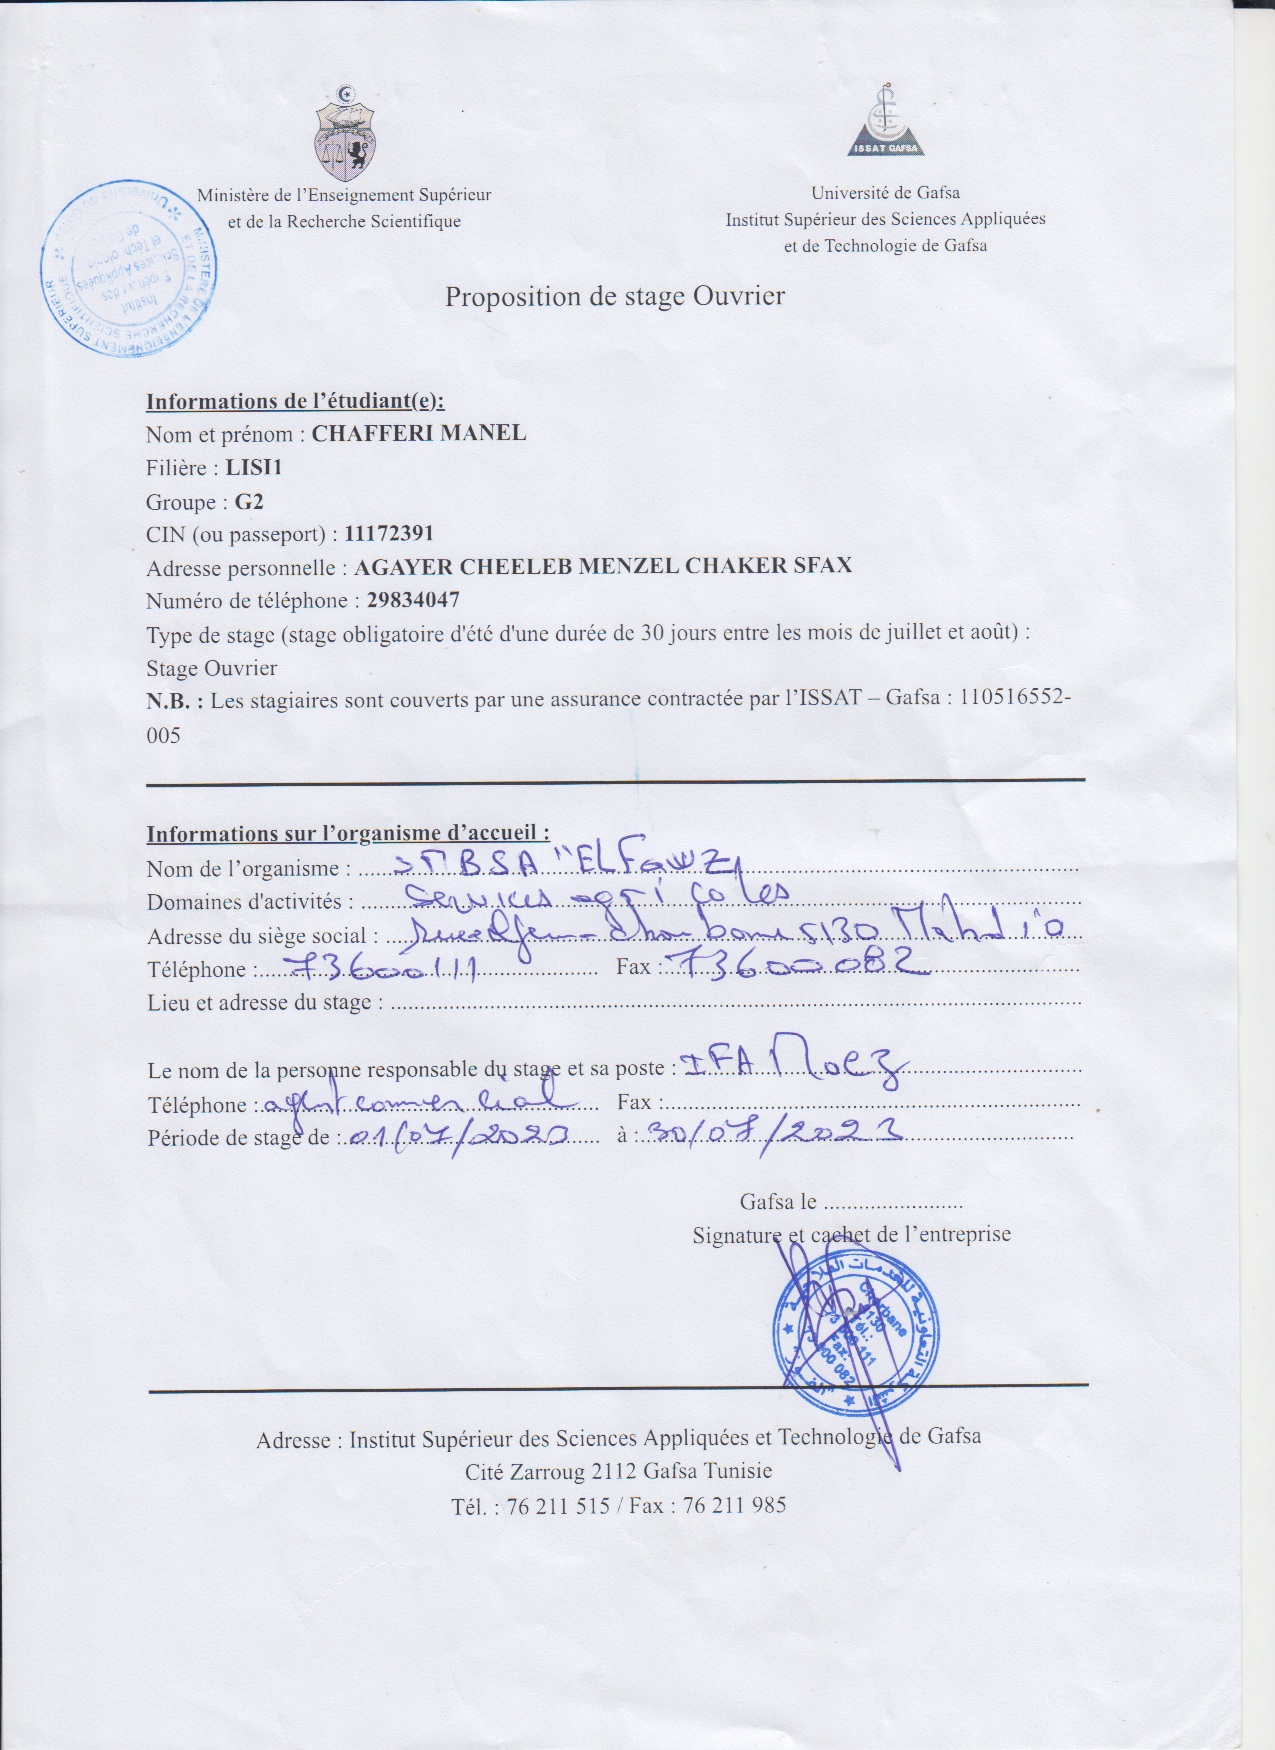 ISSAT GAFSA
Ministère de l'Enseignement Supérieur
et de la Recherche Scientifique
Université de Gafsa
Institut Supérieur des Sciences Appliquées
et de Technologie de Gafsa
MINISTERE DE L'ENSEIGNEMENT SUPERIEUR
ET DE LA RECHERCHE SCIENTIFIQUE
Institut
Proposition de stage Ouvrier
Informations de l'étudiant(e):
Nom et prénom : CHAFFERI MANEL
Filière : LISI1
Groupe : G2
CIN (ou passeport) : 11172391
Adresse personnelle : AGAYER CHEELEB MENZEL CHAKER SFAX
Numéro de téléphone : 29834047
Type de stage (stage obligatoire d'été d'une durée de 30 jours entre les mois de juillet et août) :
Stage Ouvrier
N.B. : Les stagiaires sont couverts par une assurance contractée par l'ISSAT – Gafsa : 110516552-
005
Informations sur l'organisme d'accueil :
Nom de l'organisme : "ELFawzi
Domaines d'activités : Services agricoles
Adresse du siège social : 5130 Mahdia
Téléphone : 73600111 Fax : 73600082
Lieu et adresse du stage :
Le nom de la personne responsable du stage et sa poste : IFA Moez
Téléphone : agent commercial Fax :
Période de stage de : 01/07/2023 à : 30/07/2023
Gafsa le
Signature et cachet de l'entreprise
الشركة التعاونية للخدمات الفلاحية
Chorbane
5130
Tél.:
73 600 111
Fax:
73 600 082
Adresse : Institut Supérieur des Sciences Appliquées et Technologie de Gafsa
Cité Zarroug 2112 Gafsa Tunisie
Tél. : 76 211 515 / Fax : 76 211 985